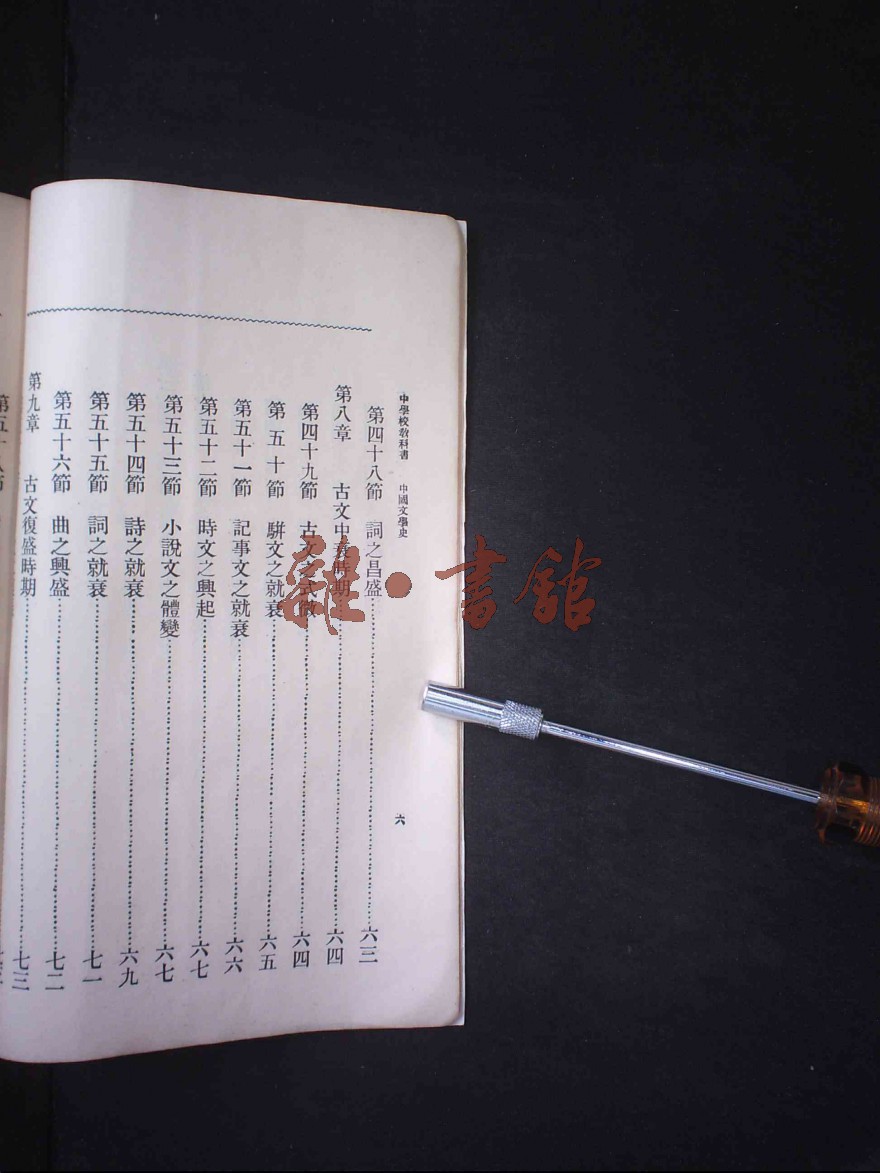 中學校教科書 中國文學史
六
第四十八節 詞之昌盛 六三
第八章 古文中衰時期 六四
第四十九節 古文之式微 六四
第五十節 駢文之就衰 六五
第五十一節 記事文之就衰 六六
第五十二節 時文之興起 六七
第五十三節 小說文之體變 六七
第五十四節 詩之就衰 六九
第五十五節 詞之就衰 七一
第五十六節 曲之興盛 七二
第九章 古文復盛時期 七三
雜·書館